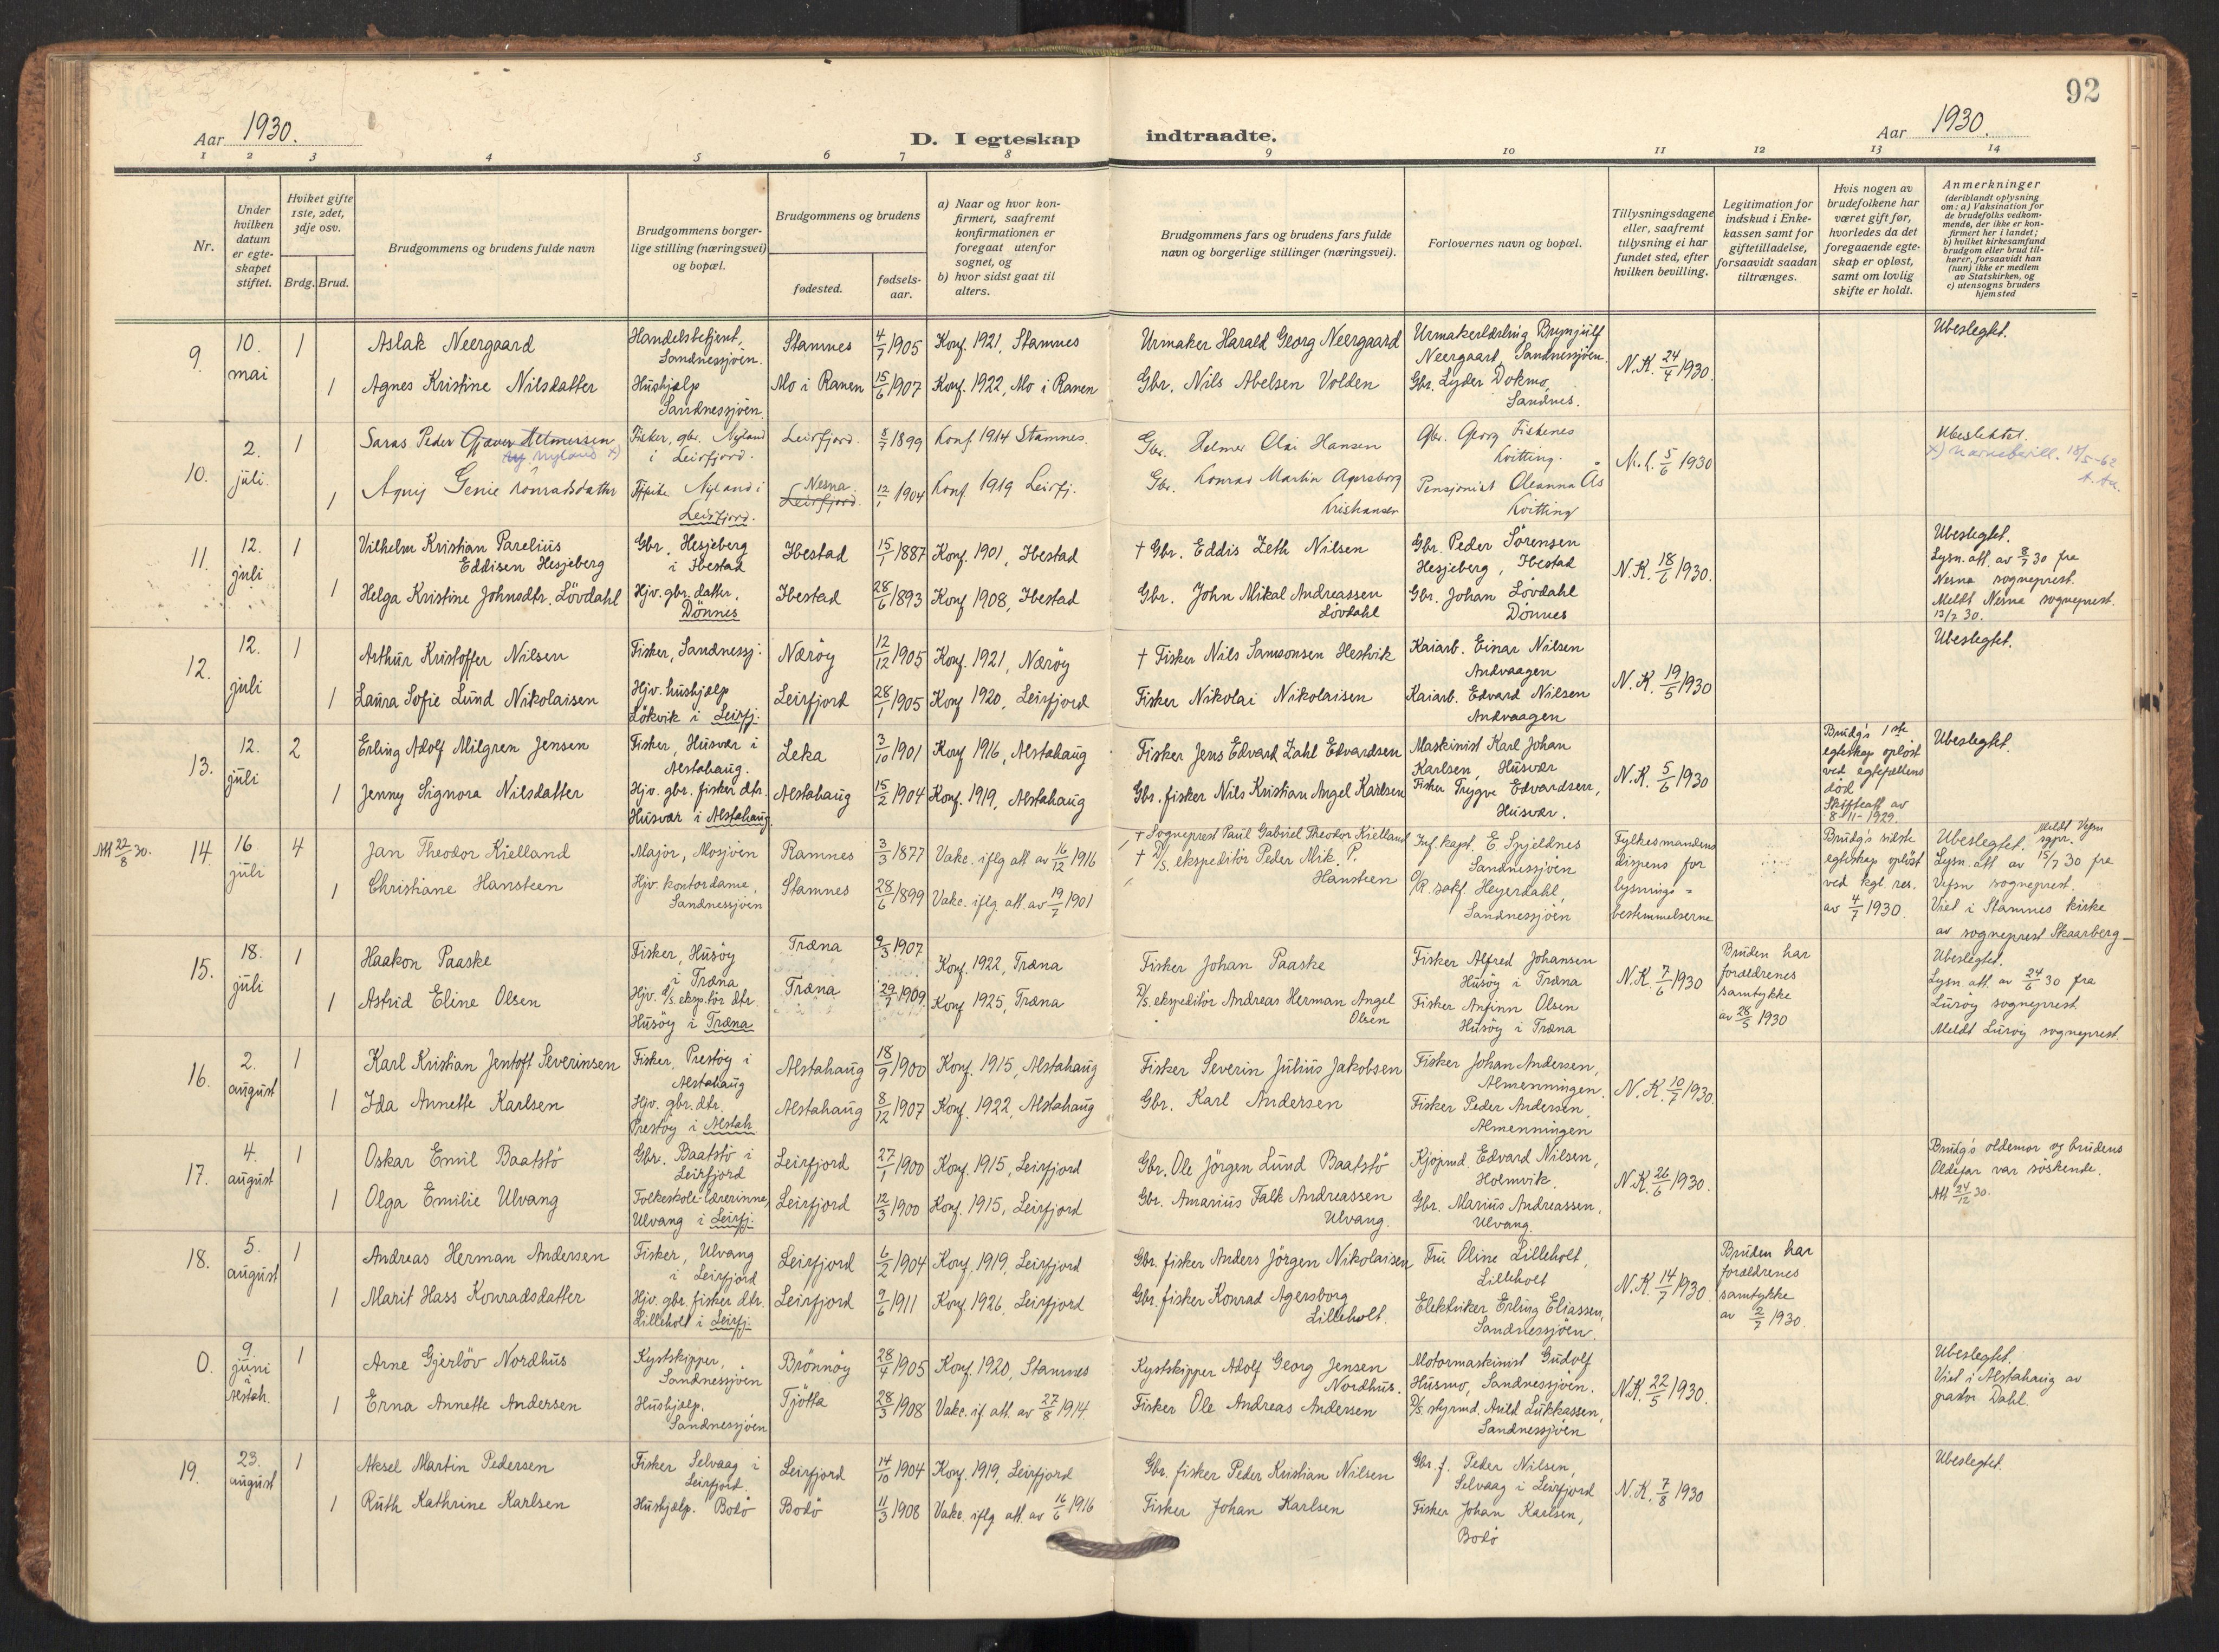 92
Aar 1930.
D. I egteskap indtraadte.
Aar 1930.
1 2 3 4 5 6 7 8 9 10 11 12 13 14
Nr.
Under hvilken datum er egte-skapet stiftet.
Hvilket gifte 1ste, 2det, 3dje osv.
Brdg. Brud.
Brudgommens og brudens fulde navn
Brudgommens borger-lige stilling (næringsvei) og bopæl.
Brudgommens og brudens
fødested.
fødsels-aar.
a) Naar og hvor kon-firmert, saafremt konfirmationen er foregaat utenfor sognet, og
b) hvor sidst gaat til alters.
Brudgommens fars og brudens fars fulde navn og borgerlige stillinger (næringsvei).
Forlovernes navn og bopæl.
Tillysningsdagene eller, saafremt tillysning ei har fundet sted, efter hvilken bevilling.
Legitimation for indskud i Enke-kassen samt for giftetilladelse, forsaavidt saadan tiltrænges.
Hvis nogen av brudefolkene har været gift før, hvorledes da det foregaaende egte-skap er opløst, samt om lovlig skifte er holdt.
Anmerkninger (deriblandt oplysning om: a) Vaksination for de brudefolks vedkom-mende, der ikke er kon-firmert her i landet; b) hvilket kirkesamfund brudgom eller brud til-hører, forsaavidt han (hun) ikke er medlem av Statskirken, og c) utensogns bruders hjemsted
9. 10. mai 1 Aslak Neergaard Handelsbetjent, Sandnessjöen. Stamnes 4/7 1905 Konf. 1921, Stamnes Urmaker Harald Georg Neergaard Urmakerlærling Brynjulf Neergaard, Sandnessjöen. N.K. 24/4 1930. Ubeslegtet.
1 Agnes Kristine Nilsdatter Hushjælp Sandnessjöen. Mo i Ranen 15/6 1907 Konf. 1922, Mo i Ranen Gbr. Nils Abelsen Volden Gbr. Lyder Dokmo, Sandnes.
10. 2. juli. 1 Saras Peder Gjæver Helmersen Nyland x) Fisker, gbr. Nyland i Leirfjord. Leirfjord. 8/7 1899 Konf 1914 Stamnes. Gbr. Helmer Olai Hansen Gbr. Georg Fiskenes Kvitting. N.K. 5/6 1930 Ubeslektet. x) Navnebevill. 18/5-62
1 Genie Konradsdatter Nyland i Leirfjord. Nesna Leirfjord. 12/1 1904 Konf 1919 Leirfj. Gbr. Konrad Martin Agersborg Kristiansen Pensjonist Oleanna Ås Kvitting
11. 12. juli 1 Vilhelm Kristian Parelius Eddisen Hesjeberg Gbr, Hesjeberg i Ibestad Ibestad 15/1 1887 Konf. 1901, Ibestad † Gbr. Eddis Zeth Nilsen Gbr. Peder Sörensen Hesjeberg, Ibestad N.K. 18/6 1930. Ubeslegtet. Lysn. att. av 8/7 30 fra Nesna sogneprest. Meldt Nesna sogneprest. 13/7 30.
1 Helga Kristine Johnsdtr. Lövdahl Hjv. gbr. datter, Dönnes Ibestad 28/6 1893 Konf 1908, Ibestad Gbr. John Mikal Andreassen Lövdahl Gbr. Johan Lövdahl Dönnes
12. 12. juli 1 Arthur Kristoffer Nilsen Fisker, Sandnessj: Næröy 12/12 1905 Konf. 1921, Næröy † Fisker Nils Samsonsen Hestvik Kaiarb. Einar Nilsen Andvaagen N.K. 19/5 1930 Ubeslegtet.
1 Laura Sofie Lund Nikolaisen Hjv. hushjælp Lökvik i Leirfj: Leirfjord 28/1 1905 Konf 1920, Leirfjord Fisker Nikolai Nikolaisen Kaiarb. Edvard Nilsen Andvaagen
13. 12. juli 2 Erling Adolf Milgren Jensen Fisker, Husvær i Alstahaug. Leka 3/10 1901 Konf 1916, Alstahaug Fisker Jens Edvard Zahl Edvardsen Maskinist Karl Johan Karlsen, Husvær N.K. 5/6 1930 Brudg's 1ste egteskap oplöst ved egtefellens död Skifteatt. av 8-11-1929. Ubeslegtet.
1 Jenny Signora Nilsdatter Hjv. gbr. fisker dtr. Husvær i Alstahaug. Alstahaug 15/2 1904 Konf. 1919, Alstahaug Gbr. fisker Nils Kristian Angel Karlsen Fisker Trygve Edvardsen, Husvær.
Att 22/8 30. 14 16. juli 4 Jan Theodor Kielland Major, Mosjöen Ramnes 3/3 1877 Vakc. iflg att av 16/12 1916 † Sogneprest Paul Gabriel Theodor Kielland Inf. kapt. E. Spjeldnes Sandnessjöen Fylkesmandens dispens for lysnings= bestemmelserne Brudg's sidste egteskap oplöst ved kgl. res. av 4/7 1930. Ubeslegtet. Meldt Vefsn sgpr. Lysn. att av 15/7 30 fra Vefsn sogneprest. Viet i Stamnes kirke av sogneprest Skaarberg—
1 Christiane Hansteen Hjv. kontordame, Sandnessjöen Stamnes 28/6 1899 Vakc. iflg. att. av 19/7 1901 † D/s. ekspeditör Peder Mik. P. Hansteen O/R. sakf. Heyerdahl, Sandnessjöen
15. 18. juli 1 Haakon Paaske Fisker, Husöy i Træna Træna 9/3 1907 Konf. 1922, Træna Fisker Johan Paaske Fisker Alfred Johansen Husöy i Træna N.K. 7/6 1930 Bruden har forældrenes samtykke av 28/5 1930 Ubeslegtet. Lysn. att. av 24/6 30 fra Luröy sogneprest. Meldt Luröy sogneprest.
1 Astrid Eline Olsen Hjv. d/s. eksp.tör dtr. Husöy i Træna Træna 29/7 1909 Konf 1925, Træna D/s. ekspeditör Andreas Herman Angel Olsen Fisker Anfinn Olsen Husöy i Træna
16. 2. august 1 Karl Kristian Jentoft Severinsen Fisker, Prestöy i Alstahaug Alstahaug 18/9 1900 Konf. 1915, Alstahaug Fisker Severin Julius Jakobsen Fisker Johan Andersen, Almenningen. N.K. 10/7 1930.
1 Ida Annette Karlsen Hjv. gbr. dtr. Prestöy i Alstah. Alstahaug 8/12 1907 Konf. 1922, Alstahaug Gbr. Karl Andersen Fisker Peder Andersen, Almenningen
17. 4. august 1 Oskar Emil Baatstö Gbr. Baatstö i Leirfjord Leirfjord 27/1 1900 Konf. 1915, Leirfjord Gbr. Ole Jörgen Lund Baatstö Kjöpmd. Edvard Nilsen, Holmvik. N.K. 26/6 1930. Brudg's oldemor og brudens Oldefar var söskende. Att 24/12 30.
1 Olga Emilie Ulvang Folkeskole-lærerinne, Ulvang i Leirfj: Leirfjord 12/3 1900 Konf. 1915, Leirfjord Gbr. Amarius Falk Andreassen Ulvang. Gbr. Marius Andreassen, Ulvang.
18. 5. august 1 Andreas Herman Andersen Fisker, Ulvang i Leirfjord Leirfjord 6/2 1904 Konf. 1919, Leirfjord Gbr. fisker Anders Jörgen Nikolaisen Fru Oline Lilleholt, Lilleholt N.K. 14/7 1930. Bruden har forældrenes samtykke av 2/7 1930.
1 Marit Hass Konradsdatter Hjv. gbr. fisker dtr. Lilleholt i Leirfj. Leirfjord 9/6 1911 Konf. 1926, Leirfjord Gbr. fisker Konrad Agersborg Lilleholt. Elektriker Erling Eliassen, Sandnessjöen.
0. 9. juni i Alstah. 1 Arne Gjerlöv Nordhus Kystskipper, Sandnessjöen Brönnöy 28/4 1905 Konf. 1920, Stamnes Kystskipper Adolf Georg Jensen Nordhus. Motormaskinist Gudolf Husmo, Sandnessjöen. N.K. 22/5 1930. Ubeslegtet. Viet i Alstahaug av pastor Dahl.
1 Erna Annette Andersen Hushjælp. Sandnessjöen Tjötta 28/3 1908 Vakc. if. att. av 27/8 1914. Fisker Ole Andreas Andersen D/s. styrmd. Arild Lukkassen, Sandnessjöen
19. 23. august 1 Aksel Martin Pedersen Fisker Selvaag i Leirfjord. Leirfjord 14/10 1904 Konf. 1919, Leirfjord Gbr. fisker Peder Kristian Nilsen Gbr. f. Peder Nilsen, Selvaag i Leirfjord N.K. 7/8 1930 Ubeslegtet.
1 Ruth Kathrine Karlsen Hushjælp. Bodö Bodö 11/3 1908 Vakc. iflg att. av 16/6 1916 Fisker Johan Karlsen Fisker Johan Karlsen, Bodö